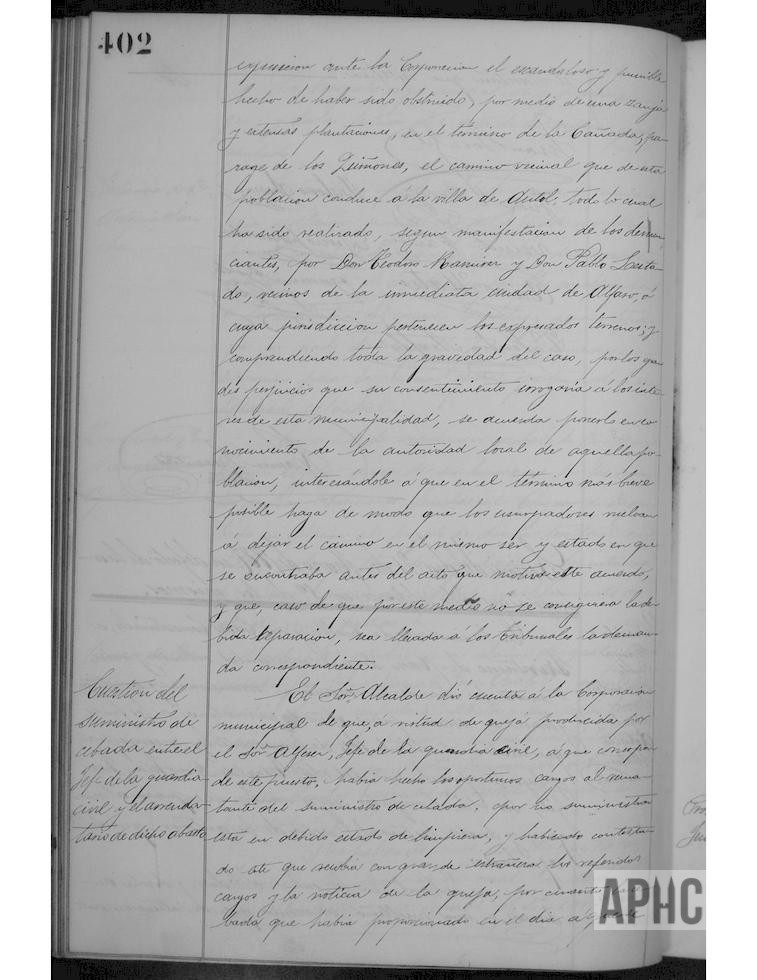 402
ante la Corporacion el escandaloso y punible
hecho de haber sido obstruido, por medio de una zanja
y extensas plantaciones, en el término de la Cañada, pa-
rage de los Quiñones, el camino vecinal que de esta
poblacion conduce á la villa de Autol; todo lo cual
ha sido realizado, segun manifestacion de los denun-
ciantes, por Don Teodoro Ramirez y Don Pablo
do, vecinos de la inmediata ciudad de Alfaro, á
cuya jurisdiccion pertenecen los expresados terrenos; y
comprendiendo toda la gravedad del caso, por los gran-
des perjuicios que su consentimiento irrogaria á los inte-
reses de esta municipalidad, se acuerda ponerlo en co-
nocimiento de la autoridad local de aquella po-
blacion, interesándole á que en el término más breve
posible haga de modo que los usurpadores vuelvan
á dejar el camino en el mismo ser y estado en que
se encontraba antes del acto que motiva este acuerdo,
y que, caso de que por este medio no se consiguiera la de-
bida reparacion, sea llevada á los tribunales la deman-
da correspondiente.
Cuestion del
suministro de
cebada entre el
Jefe de la guardia
civil y el arrenda-
tario de dicho abasto
El Sor. Alcalde dió cuenta á la Corporacion
municipal de que, á virtud de queja producida por
el Sor. Alferez, Jefe de la guardia civil, á que correspon-
de este puesto, habia hecho los oportunos cargos al rema-
tante del suministro de cebada, por no suministrar
esta en debido estado de limpieza, y habiendo contesta-
do este que recibia con grande estrañeza los referidos
cargos y la noticia de la queja, por cuanto la ce-
bada que habia proporcionado en el dia
APHC